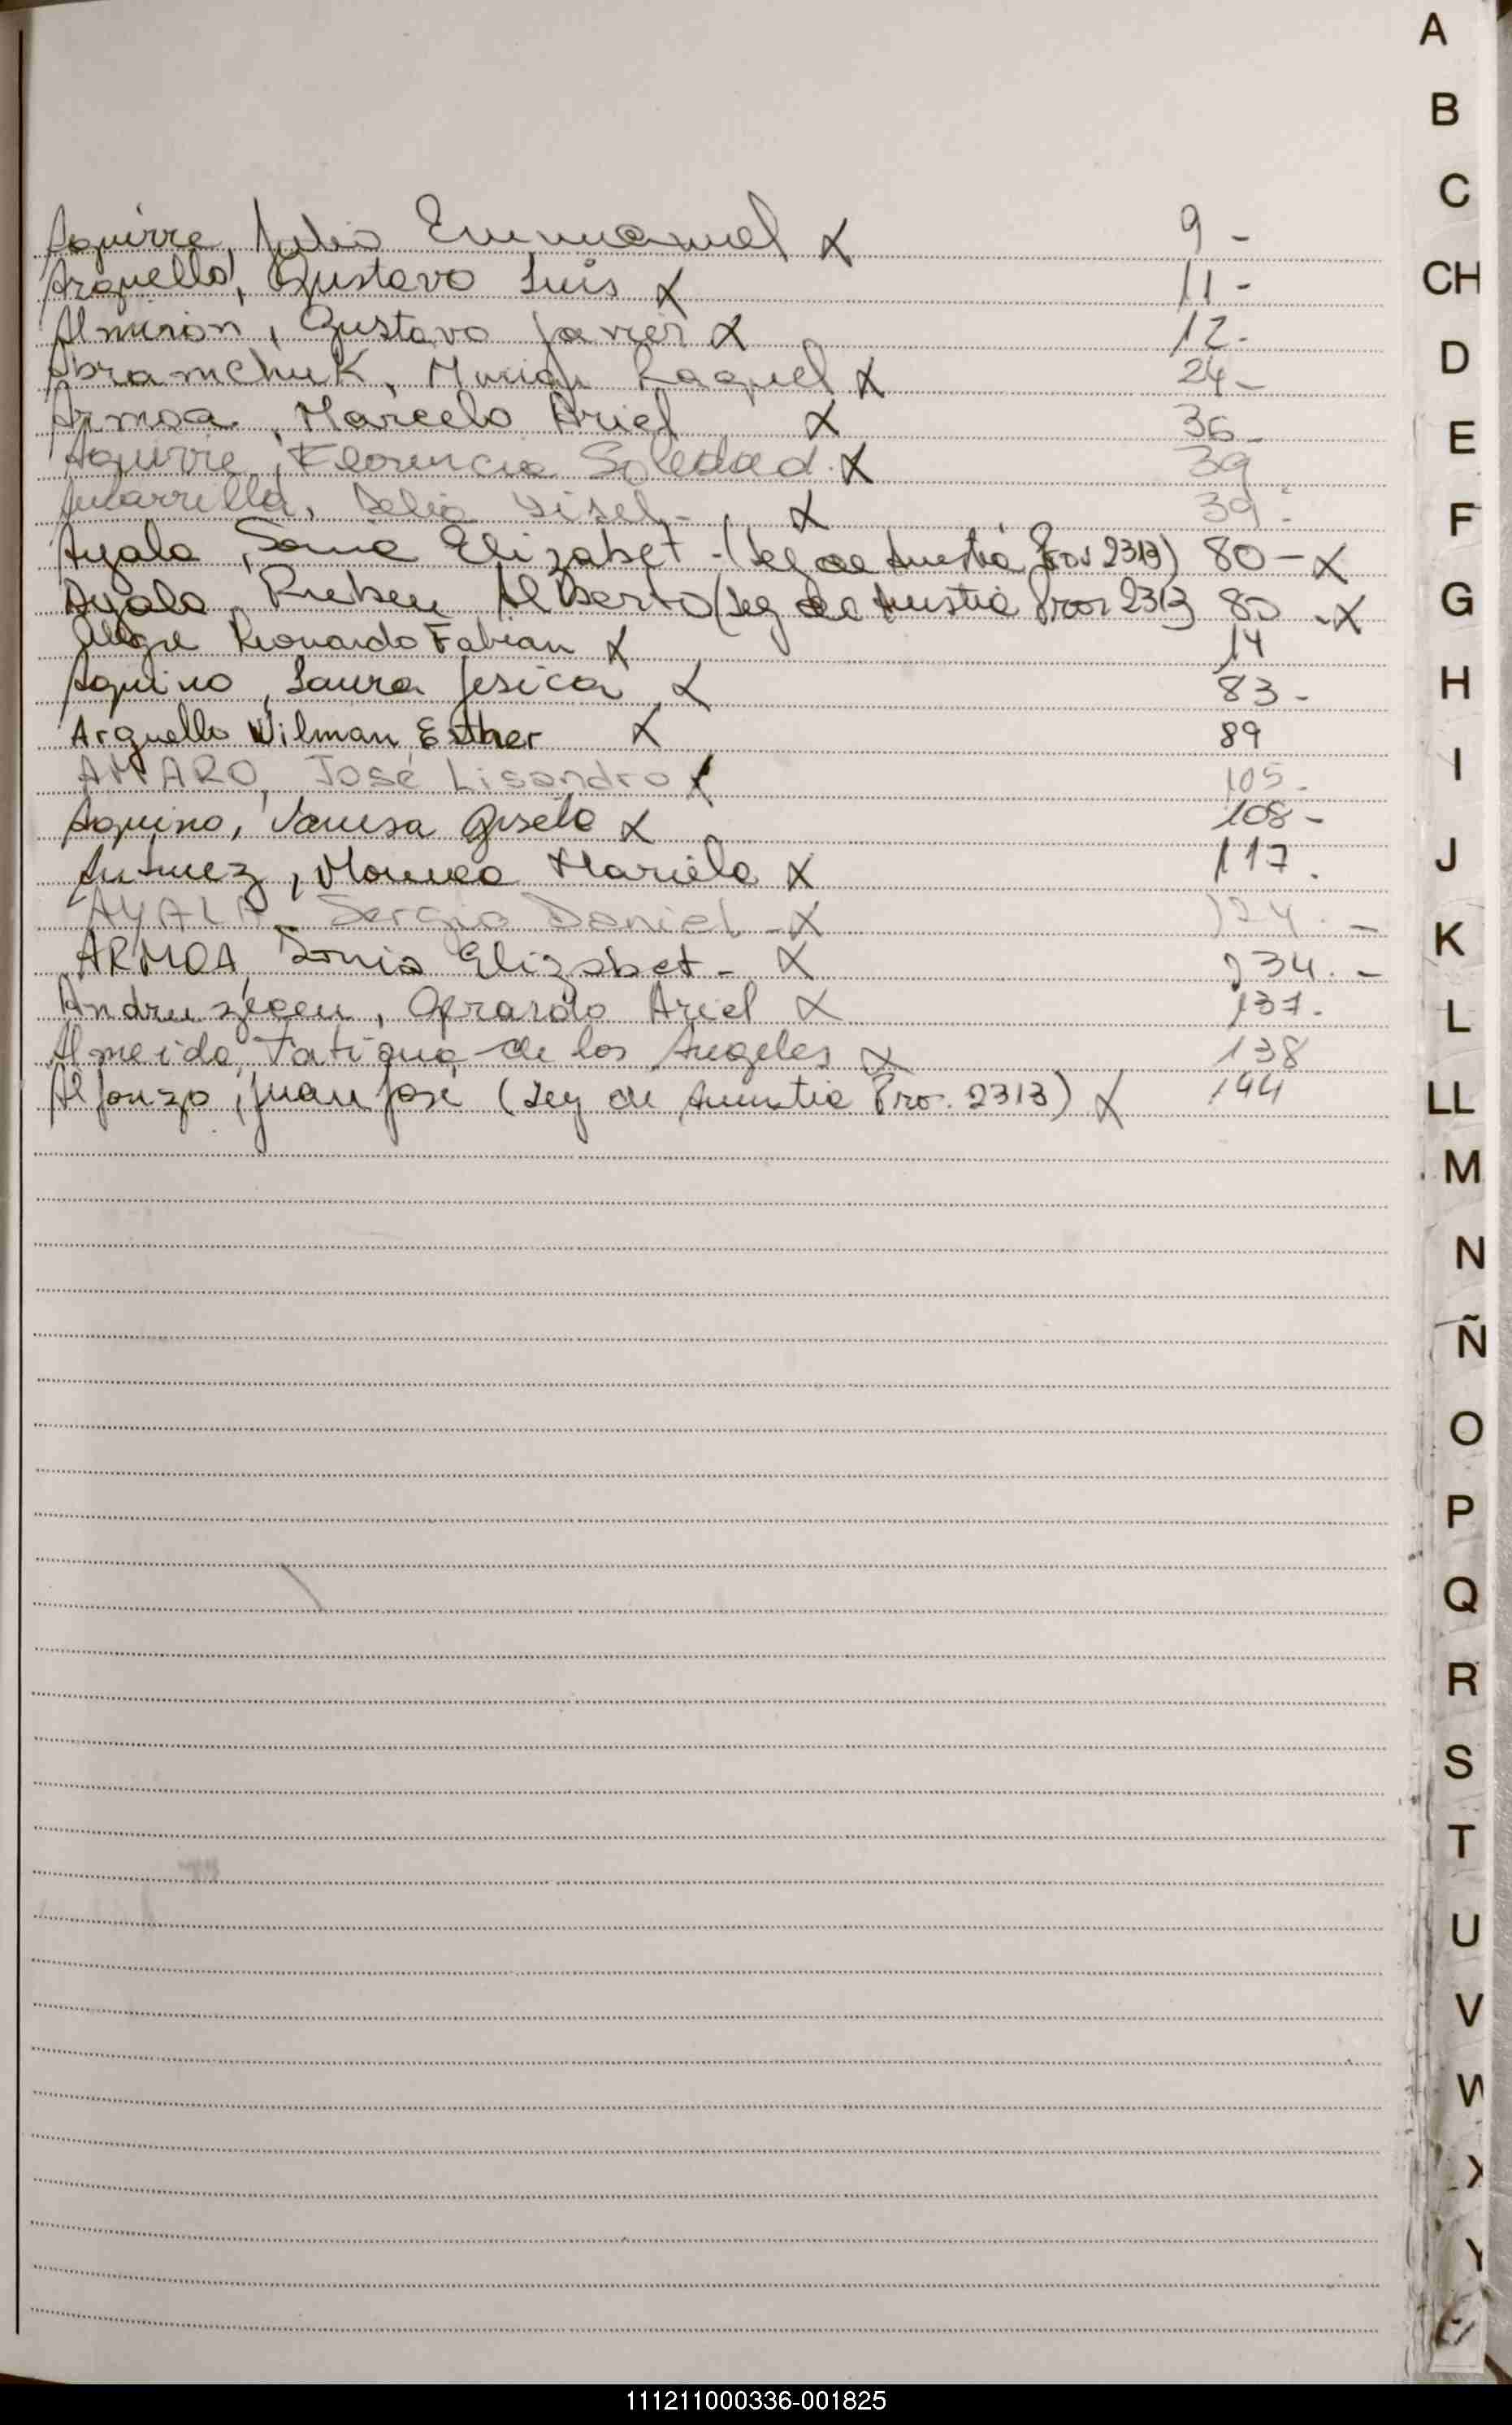 A
B
C
Aguirre, Julio Emmanuel X 9 -
Arguello, Gustavo Luis X 11 -
CH
Almiron, Gustavo Javier X 12.
D
Abramchuk, Raquel X 24 -
Armoa, Marcelo Ariel X 36 -
E
Aguirre, Florencia Soledad. X 39
Delia Gisel - X 39 -
F
Ayala, Sonia Elizabet - (Ley de Amnistia Prov 2313) 80 - X
G
Ayala, Ruben Alberto (Ley de Amnistia Prov 2313 80 - X
Alegre Leonardo Fabian X 14
H
Aquino, Laura Jesica X 83 -
Arguello Wilman Esther X 89
I
AMARO, José Lisandro X 105 -
Aquino, Vanesa Gisela X 108 -
J
Antunez, Monica Mariela X 117.
K
AYALA Sergio Daniel - X 124. -
ARMOA, Sonia Elizabet - X 134. -
L
Ariel X 137.
Almeida, Tatiana de los Angeles X 138
LL
Alfonzo, Juan José (Ley de Amnistia Pro. 2313) X 144
M
N
Ñ
O
P
Q
R
S
T
U
V
W
X
Y
111211000336-001825